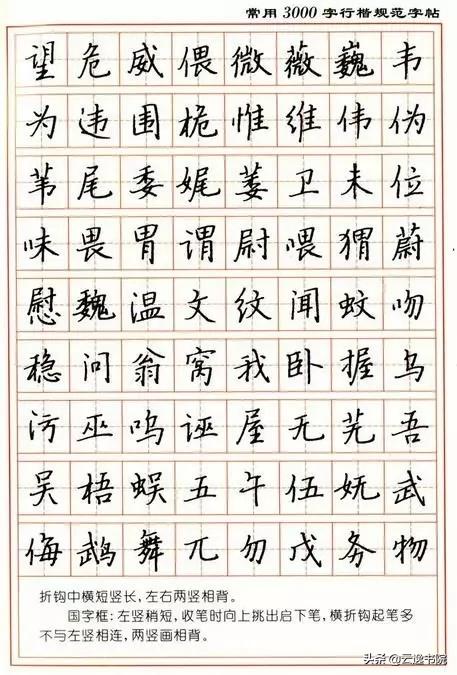 常用3000字行楷规范字帖
望危威偎微薇巍韦
为违围桅惟维伟伪
苇尾委娓萎卫未位
味畏胃谓尉喂猬蔚
慰魏温文纹闻蚊吻
稳问翁窝我卧握乌
污巫呜诬屋无芜吾
吴梧蜈五午伍妩武
侮鹉舞兀勿戊务物
折钩中横短竖长,左右两竖相背。
国字框:左竖稍短,收笔时向上挑出启下笔,横折钩起笔多
不与左竖相连,两竖画相背。
头条@云逸书院